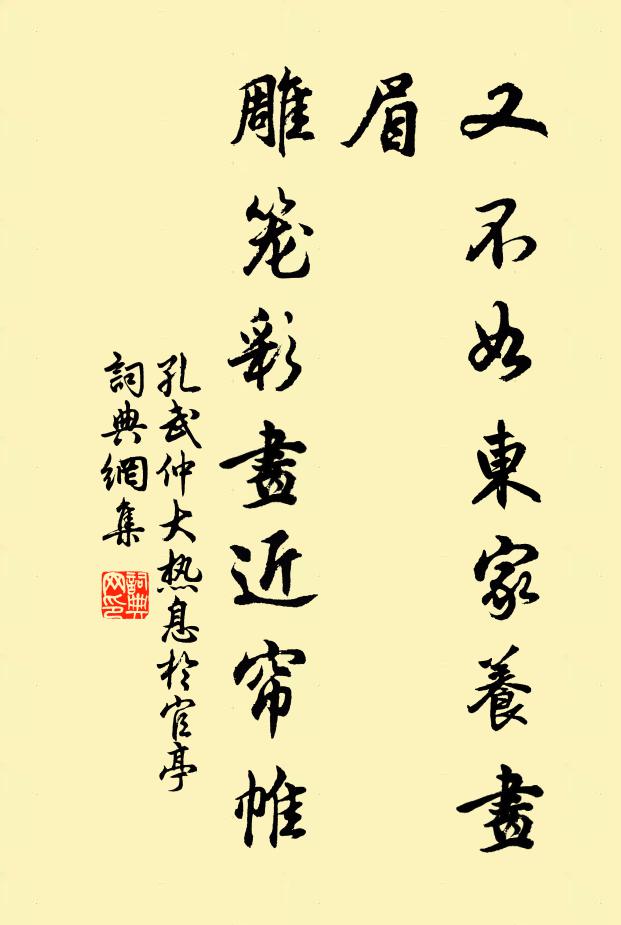 又不如東家養畫
眉
雕笼彩畫近帘帷
孔武仲大热息於官亭
詞典網集
詞典网印